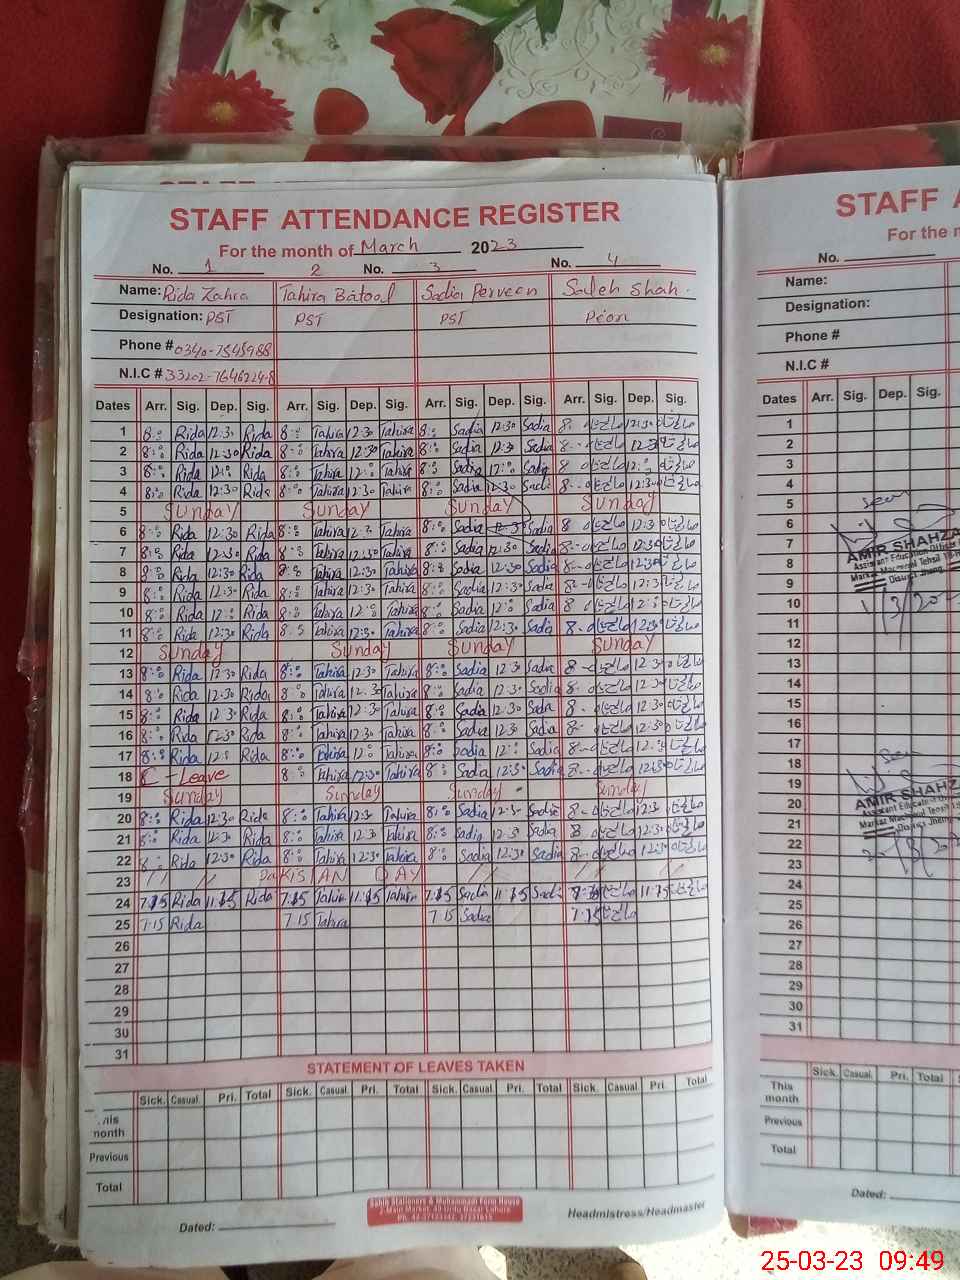 STAFF ATTENDANCE REGISTER
For the month of March 2023
No. 1 2 No. 3 No. 4
Name: Rida Zahra Tahira Batool Sadia Perveen Saleh Shah.
Designation: PST PST PST Peon
Phone # 0340-7545988
N.I.C # 33202-7646224-8
Dates Arr. Sig. Dep. Sig. Arr. Sig. Dep. Sig. Arr. Sig. Dep. Sig. Arr. Sig. Dep. Sig.
1 8:00 Rida 12:30 Rida 8:00 Tahira 12:30 Tahira 8:00 Sadia 12:30 Sadia 8-
2 8:00 Rida 12:30 Rida 8:00 Tahira 12:30 Tahira 8:00 Sadia 12:30 Sadia 8-
3 8:00 Rida 12:00 Rida 8:00 Tahira 12:00 Tahira 8:00 Sadia 12:00 Sadia 8
4 8:00 Rida 12:30 Rida 8:00 Tahira 12:30 Tahira 8:00 Sadia 12:30 Sadia 8-
5 Sunday Sunday Sunday Sunday
6 8:00 Rida 12:30 Rida 8:00 Tahira Tahira 8:00 Sadia 12:30 Sadia 8 12:30
7 8:00 Rida 12:30 Rida 8:00 Tahira 12:30 Tahira 8:00 Sadia 12:30 Sadia 8- 12:30
8 8:00 Rida 12:30 Rida 8:00 Tahira 12:30 Tahira 8:00 Sadia 12:30 Sadia 8- 12:30
9 8:00 Rida 12:30 Rida 8:00 Tahira 12:30 Tahira 8:00 Sadia 12:30 Sadia 8- 12:30
10 8:00 Rida 12:00 Rida 8:00 Tahira 12:00 Tahira 8:00 Sadia 12:00 Sadia 8
11 8:00 Rida 12:30 Rida Tahira 12:30 Tahira 8:00 Sadia 12:30 Sadia 8- 12:30
12 Sunday Sunday Sunday Sunday
13 8:00 Rida 12:30 Rida 8:00 Tahira 12:30 Tahira 8:00 Sadia 12:30 Sadia 8- 12:30
14 8:00 Rida 12:30 Rida 8:00 Tahira 12:30 Tahira 8:00 Sadia 12:30 Sadia 8- 12:30
15 8:00 Rida 12:30 Rida 8:00 Tahira 12:30 Tahira 8:00 Sadia 12:30 Sadia 8- 12:30
16 8:00 Rida 12:30 Rida 8:00 Tahira 12:30 Tahira 8:00 Sadia 12:30 Sadia 8- 12:30
17 8:00 Rida Rida 8:00 Tahira 12:00 Tahira 8:00 Sadia 12:00 Sadia 8-
18 C - Leave 8:00 Tahira 12:30 Tahira 8:00 Sadia 12:30 Sadia 8- 12:30
19 Sunday Sunday Sunday Sunday
20 8:00 Rida 12:30 Rida 8:00 Tahira 12:30 Tahira 8:00 Sadia 12:30 Sadia 8- 12:30
21 8:00 Rida 12:30 Rida 8:00 Tahira 12:30 Tahira 8:00 Sadia 12:30 Sadia 8- 12:30
22 8:00 Rida 12:30 Rida 8:00 Tahira 12:30 Tahira 8:00 Sadia 12:30 Sadia 8- 12:30
23 // // PAKISTAN DAY // //
24 7:15 Rida 11:15 Rida 7:15 Tahira 11:15 Tahira 7:15 Sadia 11:15 Sadia 11:15
25 7:15 Rida 7:15 Tahira 7:15 Sadia 7:15
26
27
28
29
30
31
STATEMENT OF LEAVES TAKEN
Sick. Casual. Pri. Total Sick. Casual. Pri. Total Sick. Casual. Pri. Total Sick. Casual. Pri. Total
This month
Previous
Total
Dated:
Headmistress/Headmaster
STAFF A
For the m
No.
Name:
Designation:
Phone #
N.I.C #
Dates Arr. Sig. Dep. Sig.
1
2
3
4
5
6
7
8
9
10
11
12
13
14
15
16
17
18
19
20
21
22
23
24
25
26
27
28
29
30
31
Seen
AMIR SHAHZA
Assistant Education Officer
District Jhang
Seen
AMIR SHAHZA
Assistant Education
District Jhang
Sick. Casual. Pri. Total
This month
Previous
Total
Dated:
25-03-23 09:49